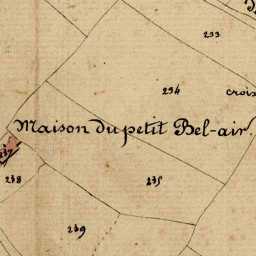 233
234
croix
Maison du petit Bel-air.
237
238
235
239